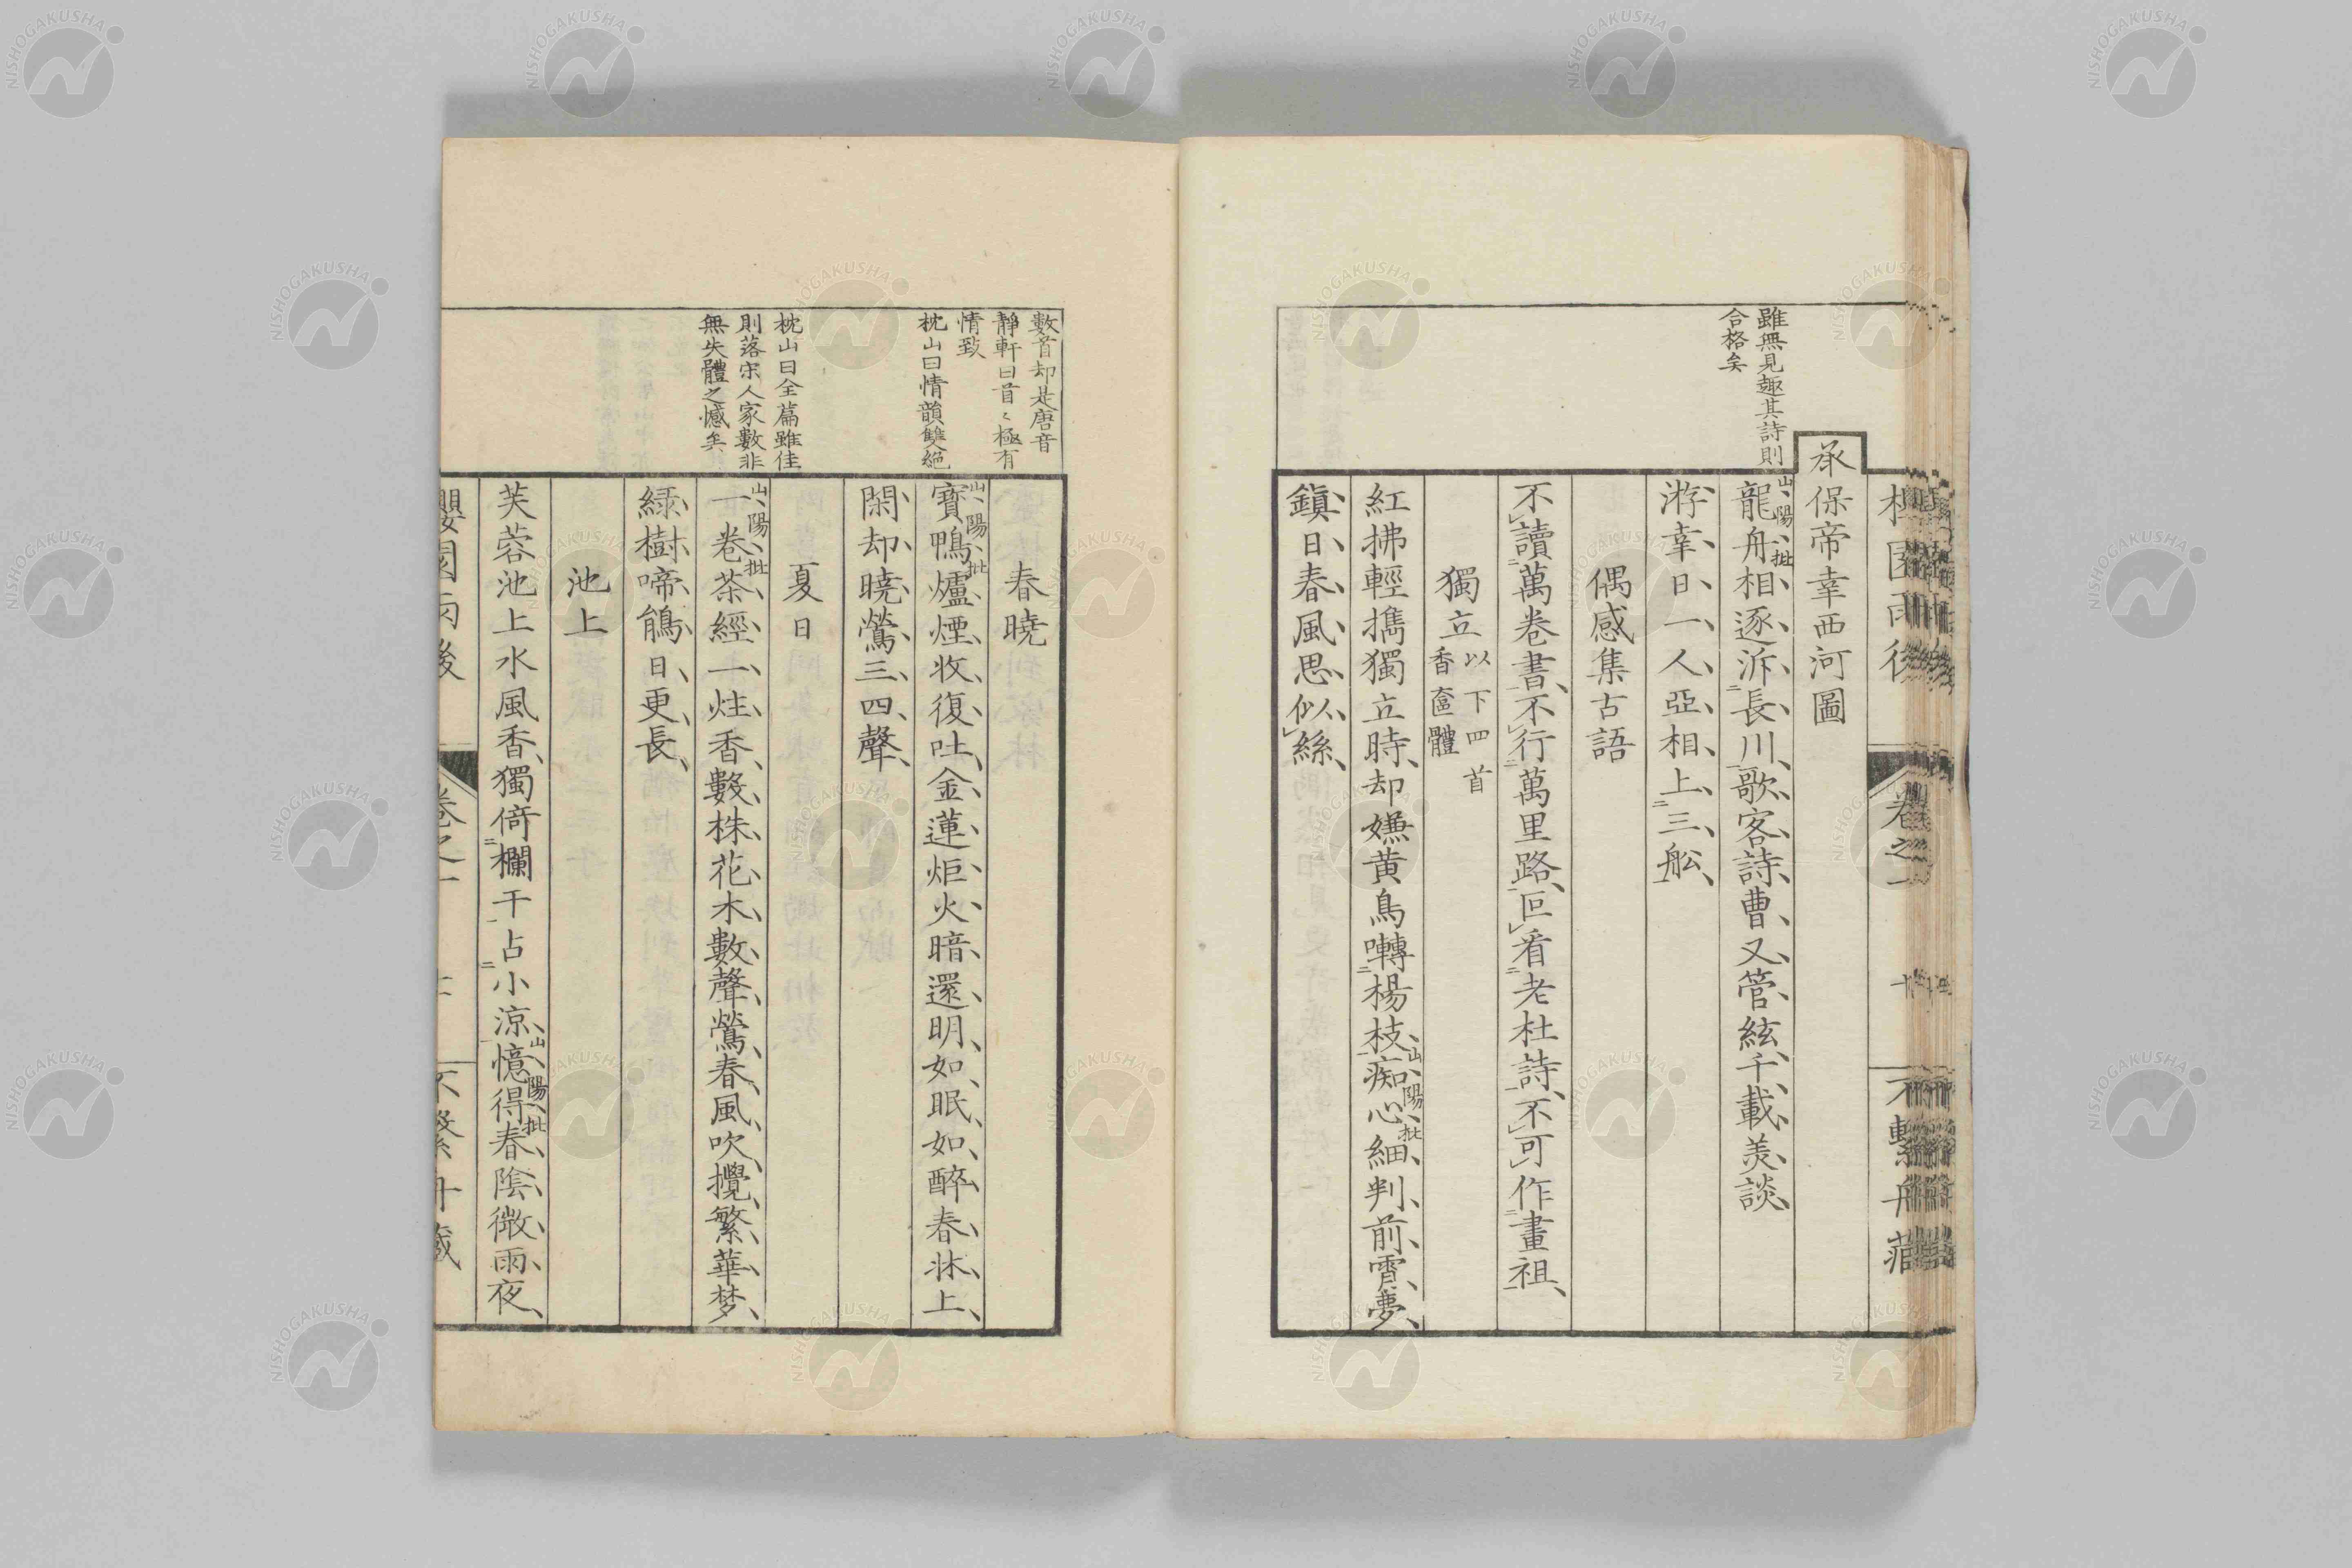 雖無見趣其詩則
合格矣
承保帝幸西河圖
山陽批
龍舟相逐泝長川歌客詩曹又管絃千載羙談
游幸日一人亞相上三舩
偶感集古語
不讀萬卷書不行萬里路叵看老杜詩不可作畫祖
獨立以下四首
香奩體
紅拂輕擕獨立時却嫌黄鳥囀楊枝痴心細判前霄夢
山陽批
鎮日春風思似絲
數首却是唐音
靜軒曰首〻極有
情致
枕山曰情韻雙絶
枕山曰全篇雖佳
則落宋人家數非
無失體之憾矣
春曉
山陽批
寶鴨爐煙收復吐金蓮炬火暗還明如眠如醉春牀上
閑却曉鶯三四聲
夏日
山陽批
一卷茶經一炷香數株花木數聲鶯春風吹攪繁華梦
綠樹啼鵃日更長
池上
芙蓉池上水風香獨倚欄干占小涼憶得春陰微雨夜
山陽批
卷之一